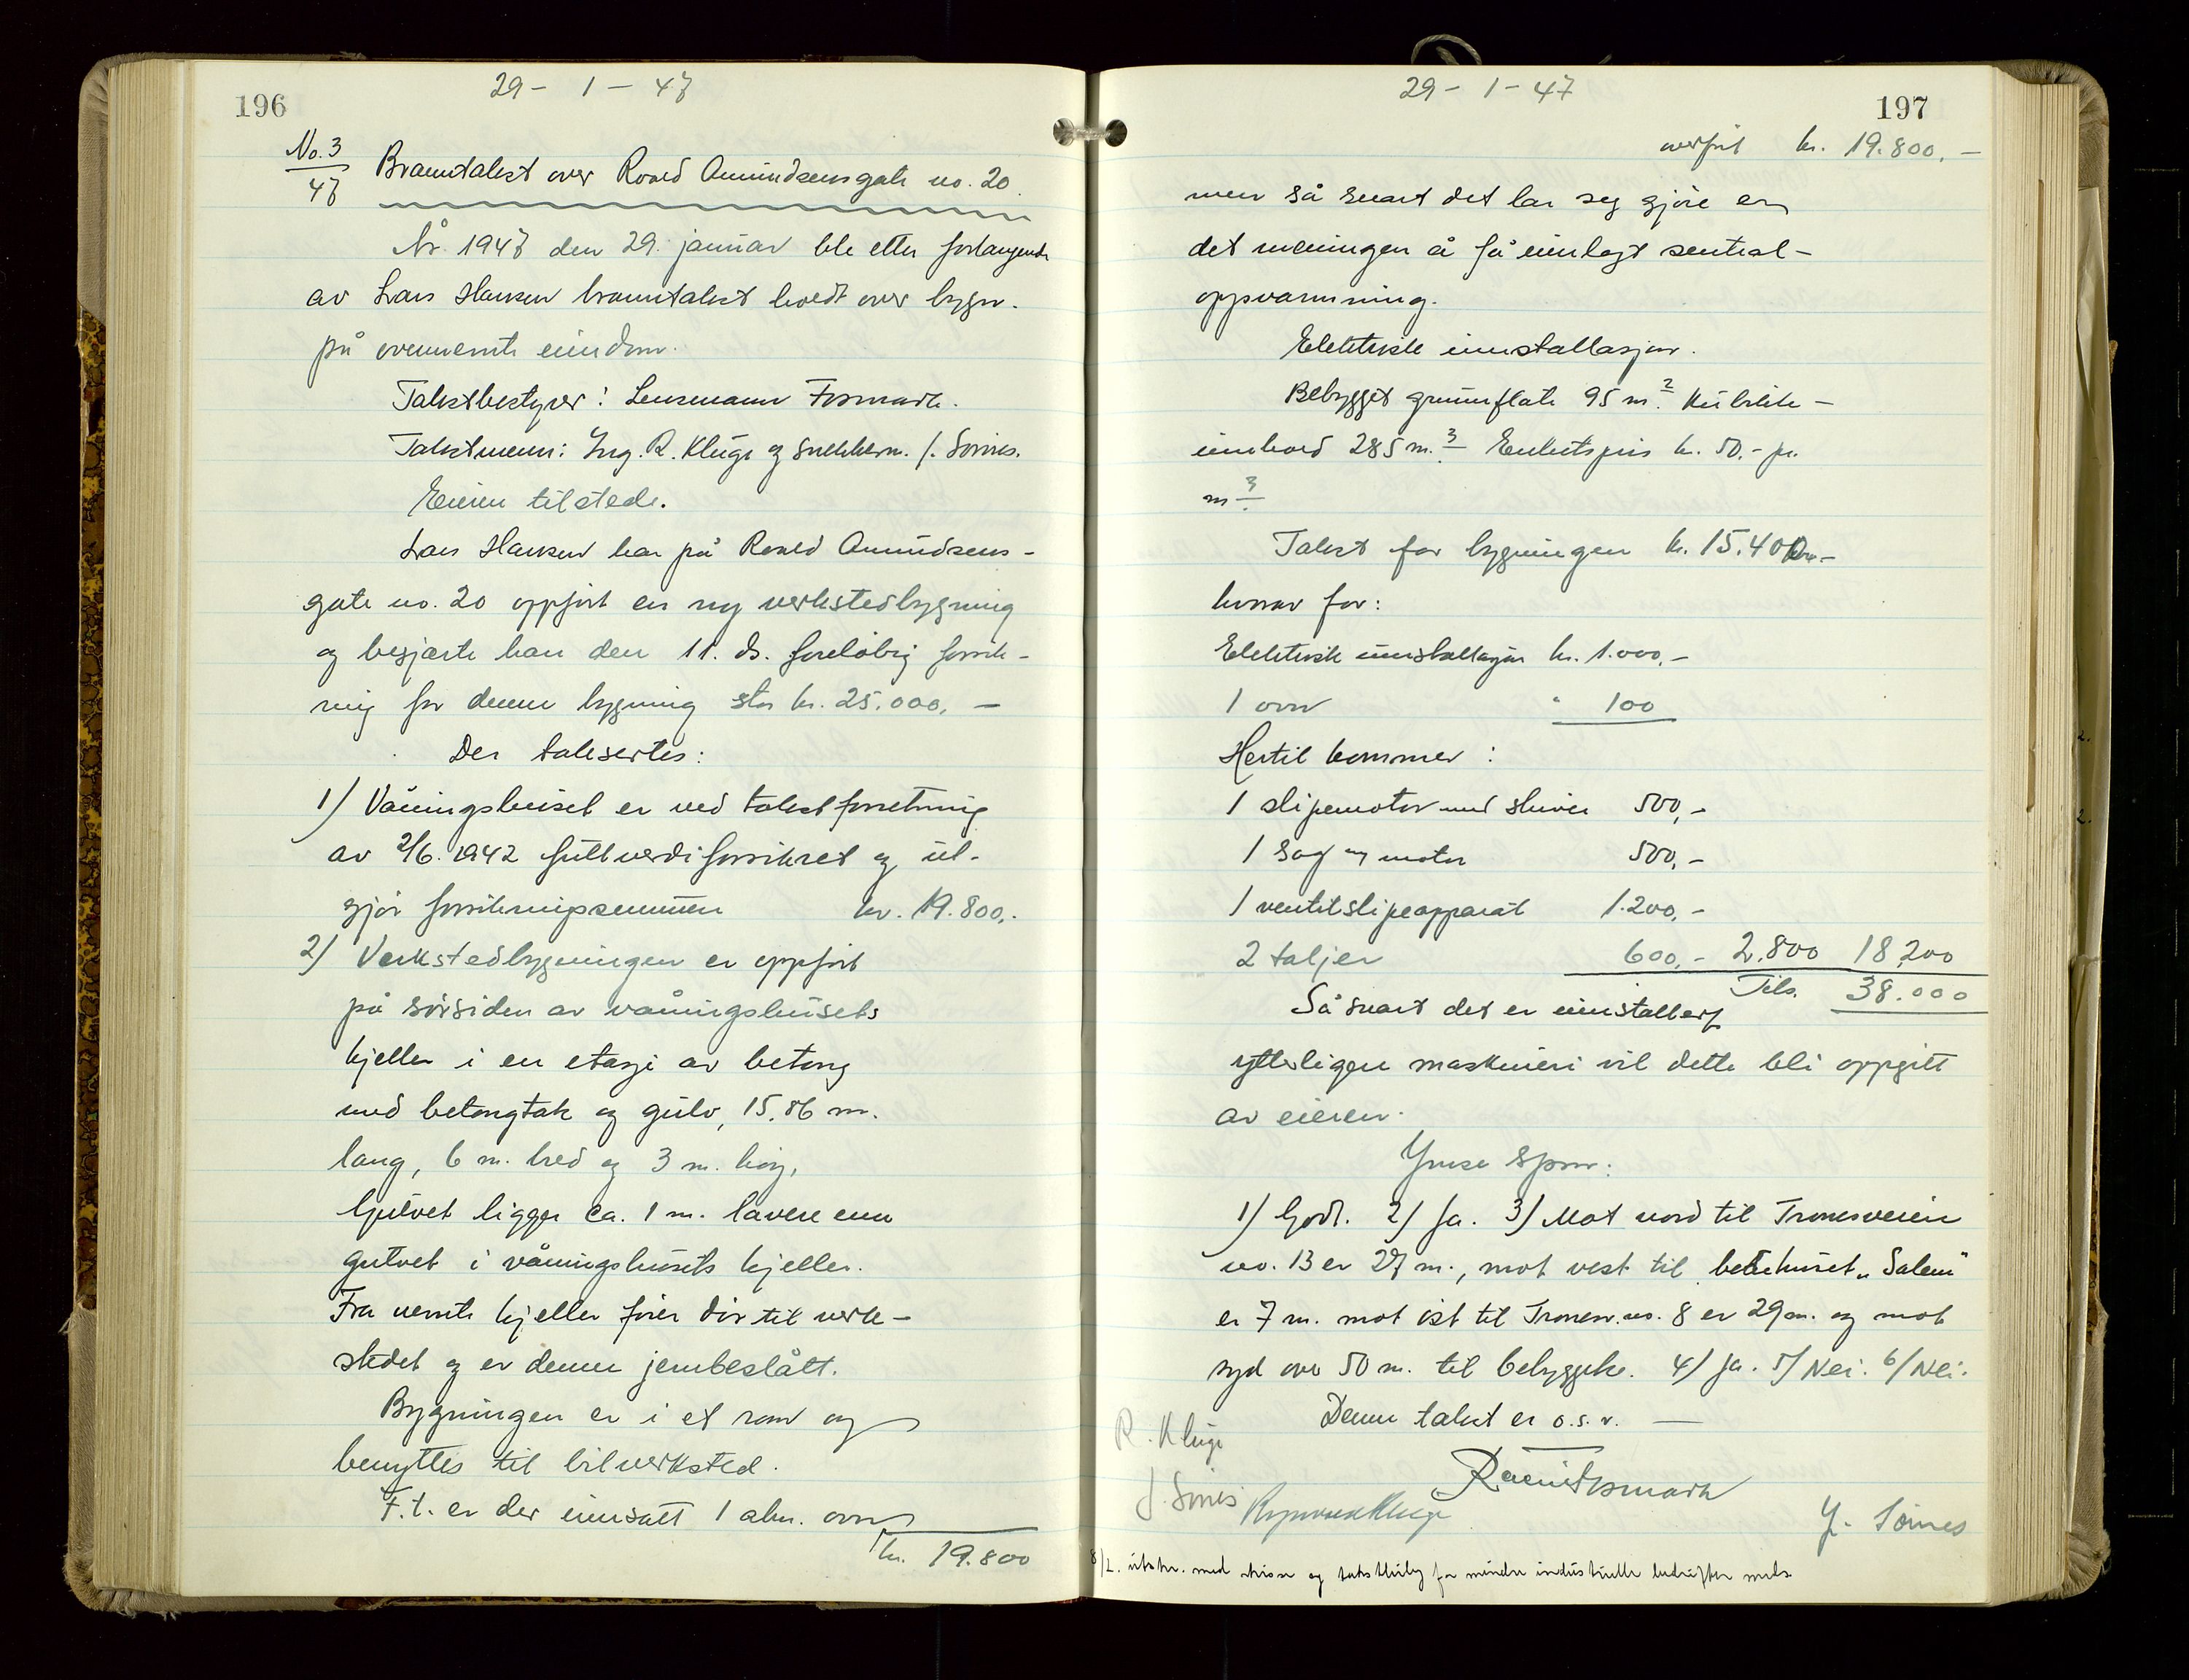 196
29 - 1 - 47
No. 3
47
Branntakst over Roald Amundsensgate no. 20.
År 1947 den 29. januar ble etter forlangende
av Lars Hansen branntakst holdt over bygn.
på ovennemte eiendom.
Takstbestyrer: Lensmann Fosmark.
Takstmenn: Ing. R. Kluge og snekkerm. J. Sörnes.
Eieren tilstede.
Lars Hansen har på Roald Amundsens-
gate no. 20 oppfört en ny verkstedbygning
og begjærte han den 11. ds. foreløbig forsik-
ring for denne bygning stor kr. 25.000, —
Der taksertes:
1) Våningshuset er ved takstforretning
av 2/6. 1942 fullverdiforsikret og ut-
gjör forsikringssummen kr. 19.800,-
2) Verkstedbygningen er oppfört
på sörsiden av våningshusets
kjeller i en etasje av betong
med betongtak og gulv, 15,86 m.
lang, 6 m. bred og 3 m. höy,
Gulvet ligger ca. 1 m. lavere enn
gulvet i våningshusets kjeller.
Fra nemte kjeller förer dör til verk-
stedet og er denne jernbeslått.
Bygningen er i et rom og
benyttes til bilverksted.
F.t. er der innsatt 1 alm. ovn
kr. 19.800
29 - 1 - 47
197
overfört kr. 19.800, —
men så snart det lar seg gjöre er
det meningen å få innlagt sentral-
oppvarmning.
Elektrisk innstallasjon.
Bebygget grunnflate 95 m.2 Kubikk-
innhold 285 m.3 Enhetspris kr. 50,- pr.
m3.
Takst for bygningen kr. 15.400,-
hvorav for:
Elektrisk innstallasjon kr. 1.000,-
1 ovn " 100
Hertil kommer:
1 slipemotor med skiver 500,-
1 sag m/ motor 500,-
1 ventilslipeapparat 1.200,-
2 taljer 600,- 2.800 18,200
Tils. 38.000
Så snart det er innstallert
ytterligere maskineri vil dette bli oppgitt
av eieren.
Ymse spm:
1) Godt. 2) Ja. 3) Mot nord til Tronesveien
no. 13 er 27 m., mot vest til bedehuset "Salem"
er 7 m. mot öst til Tronesv. no. 8 er 29 m. og mot
syd over 50 m. til bebyggelse. 4) Ja. 5) Nei. 6) Nei.
Denne takst er o.s.v. —
R. Kluge
Fosmark
J. Sörnes Kluge J. Sörnes
8/2. utskr. med skisse og for mindre industrielle bedrifter